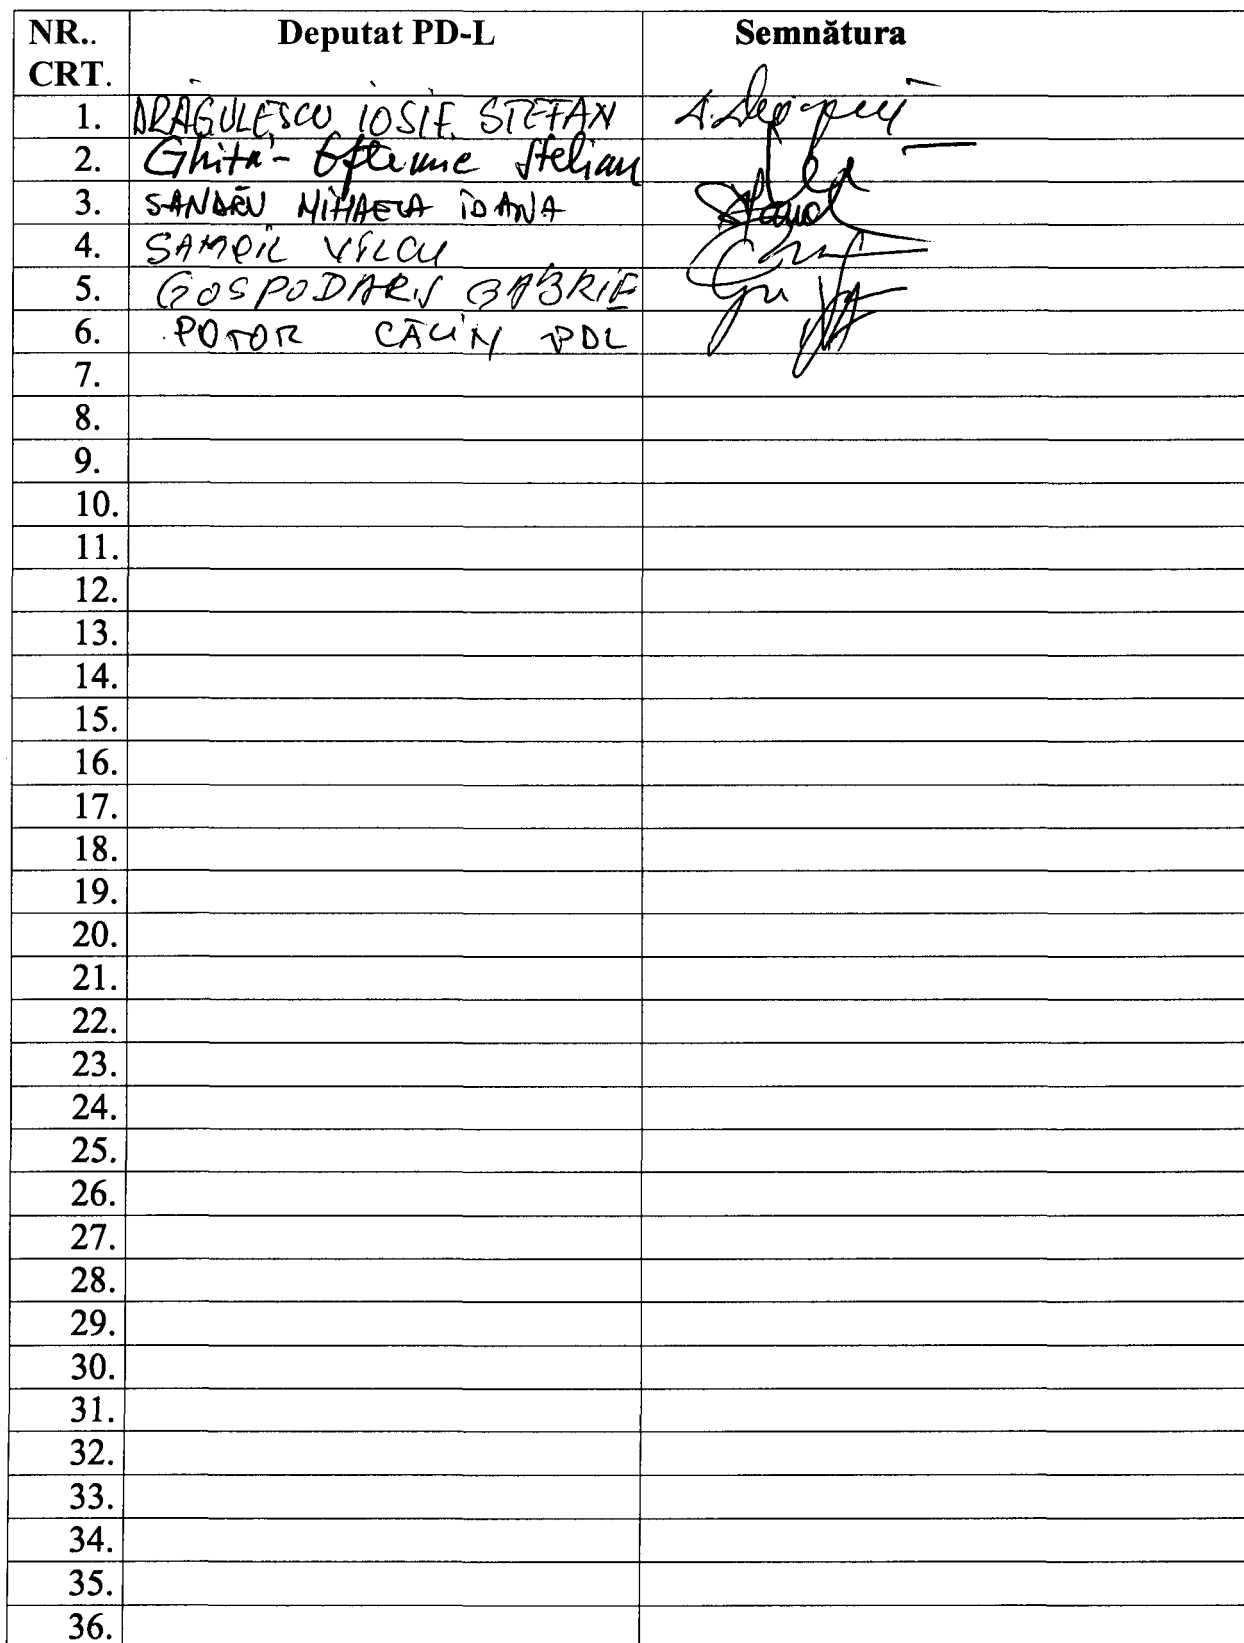 NR.. Deputat PD-L Semnătura
CRT.
1. DRĂGULESCU IOSIF STEFAN
2. Ghiță-Eftemie Stelian
3. SANDRU MIHAELA IOANA
4. SAMOIL VÎLCU
5. GOSPODARU GABRIE
6. POTOR CĂLIN PDL
7.
8.
9.
10.
11.
12.
13.
14.
15.
16.
17.
18.
19.
20.
21.
22.
23.
24.
25.
26.
27.
28.
29.
30.
31.
32.
33.
34.
35.
36.